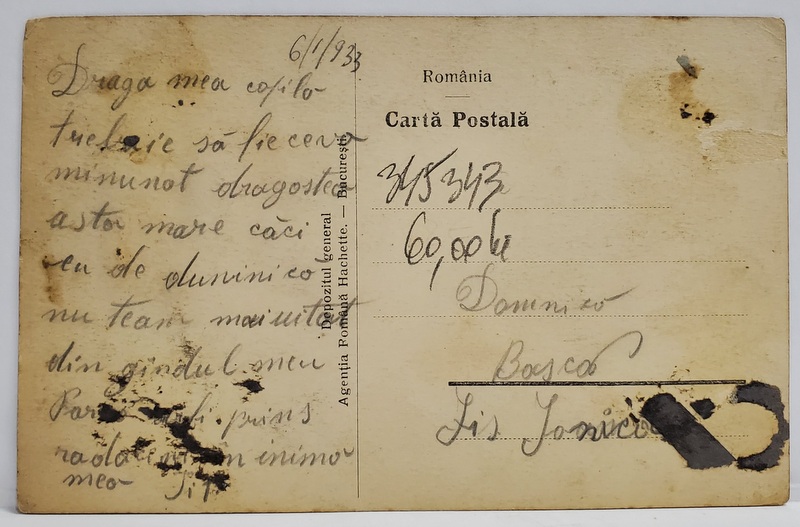 6/1/933
Draga mea copilo
trebuie să fie ceva
minunat dragostea
asta mare căci
eu de duminică
nu team mai uitat
din gîndul meu
Parcă prins
radacini în inima
mea
Depozitul general
Agenția Română Hachette. — București
România
Cartă Postală
345343
60,00 lei
Domnico
Basca